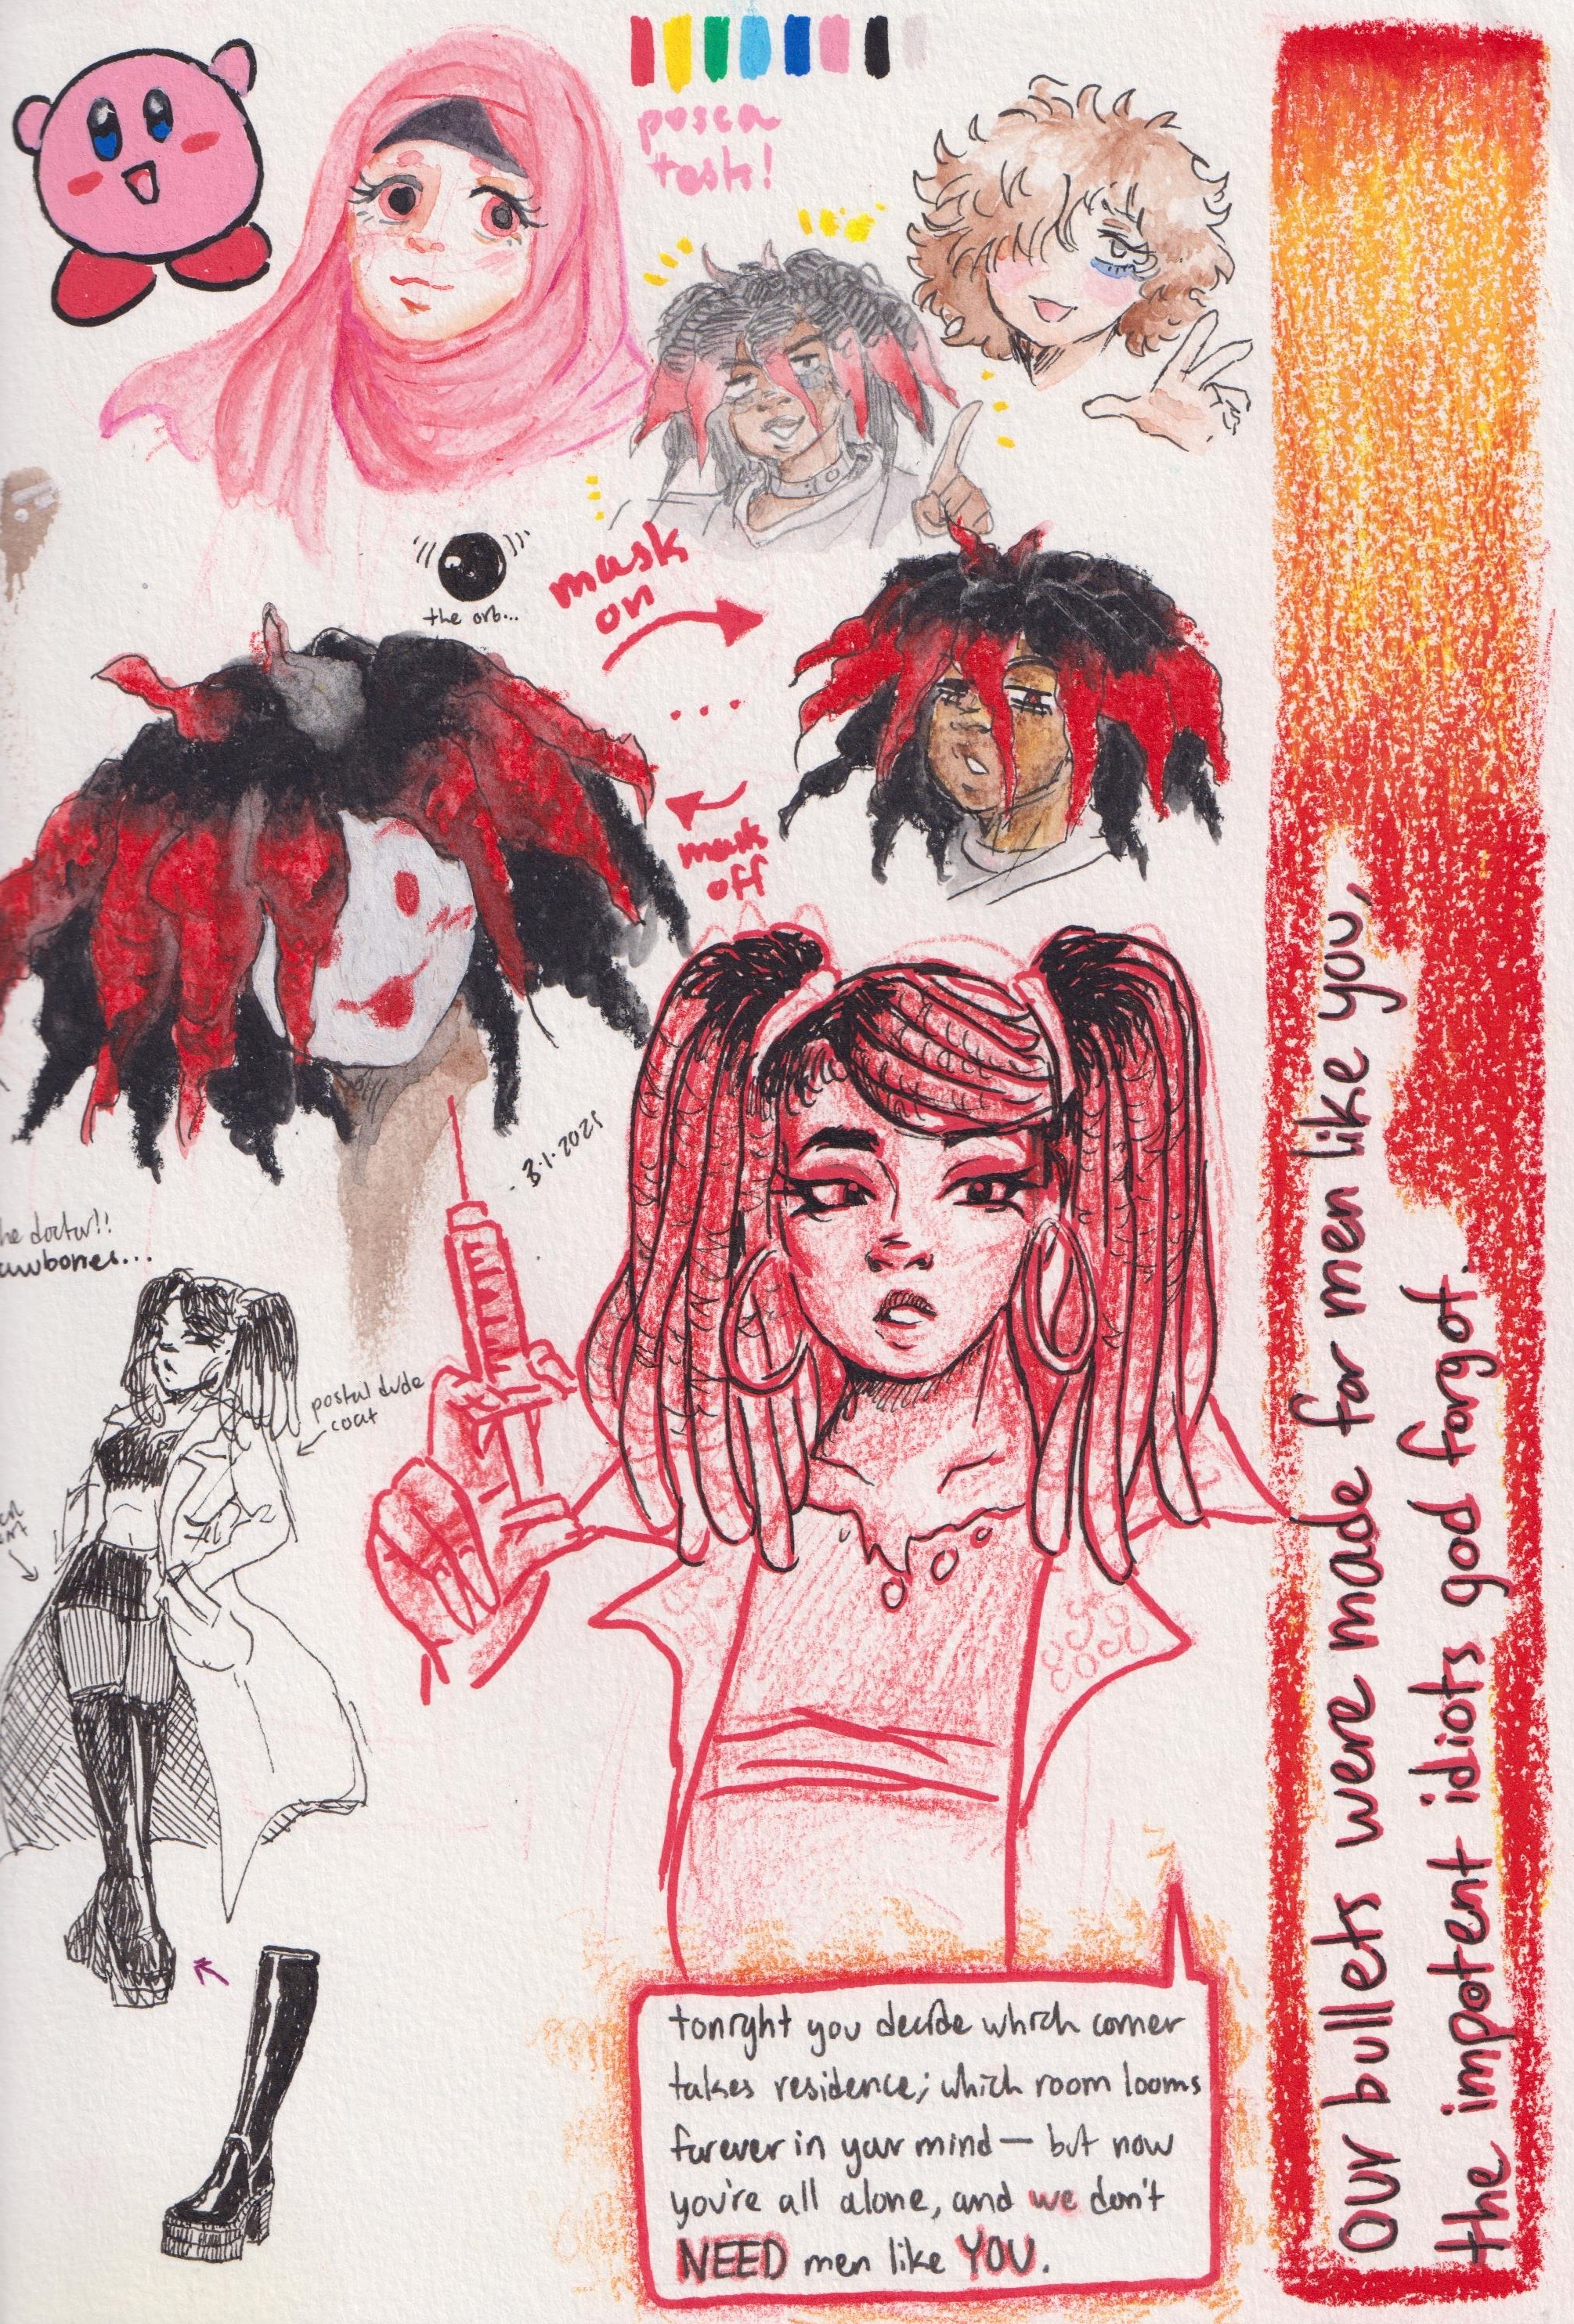 posca
test!
the orb...
mask
on
...
mask
off
3.1.2025
the doctor!!
sawbones...
postal dude
coat
tonight you decide which corner
takes residence; which room looms
forever in your mind — but now
you're all alone, and we don't
NEED men like YOU.
Our bullets were made for men like you,
the impotent idiots god forgot.